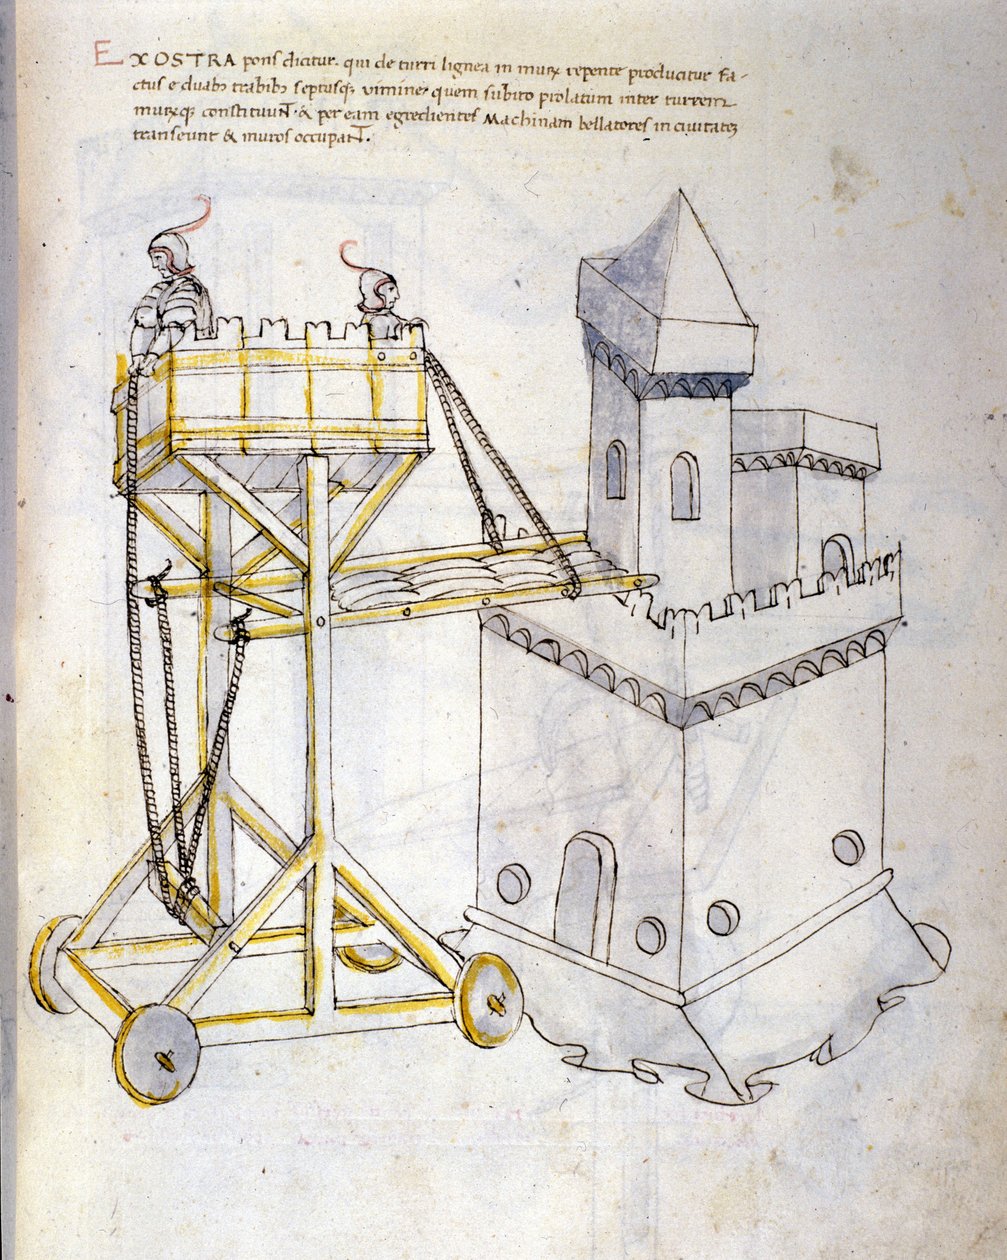 EXOSTRA pons dicitur. qui de turri lignea in murꝝ repente producitur fa-
ctus e duabꝫ trabibꝫ septusqꝫ vimine quem subito prolatum inter turrem
murꝝqꝫ constituunt̅. & per eam egredientes Machinam bellatores in ciuitatẽ
transeunt & muros occupant̅.